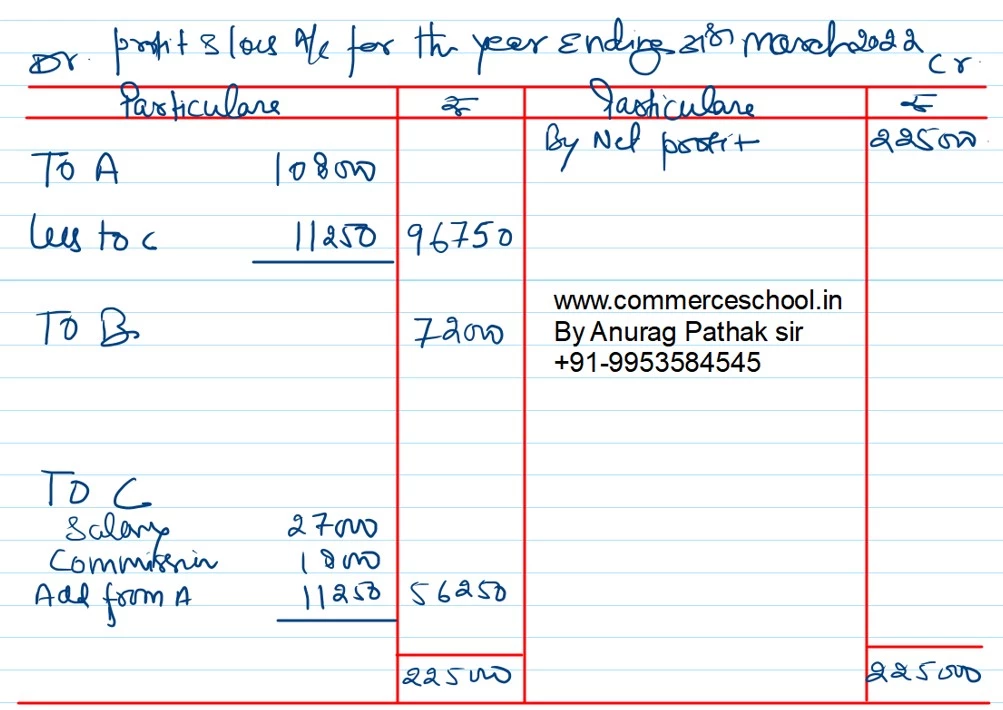 Dr. profit & loss A/c for the year Ending 31st March 2022 Cr.
Particulars ₹ Particulars ₹
By Net profit 225000
To A 108000
Less to C 11250 96750
www.commerceschool.in
To B 72000 By Anurag Pathak sir
+91-9953584545
To C
Salary 27000
Commission 18000
Add from A 11250 56250
225000 225000